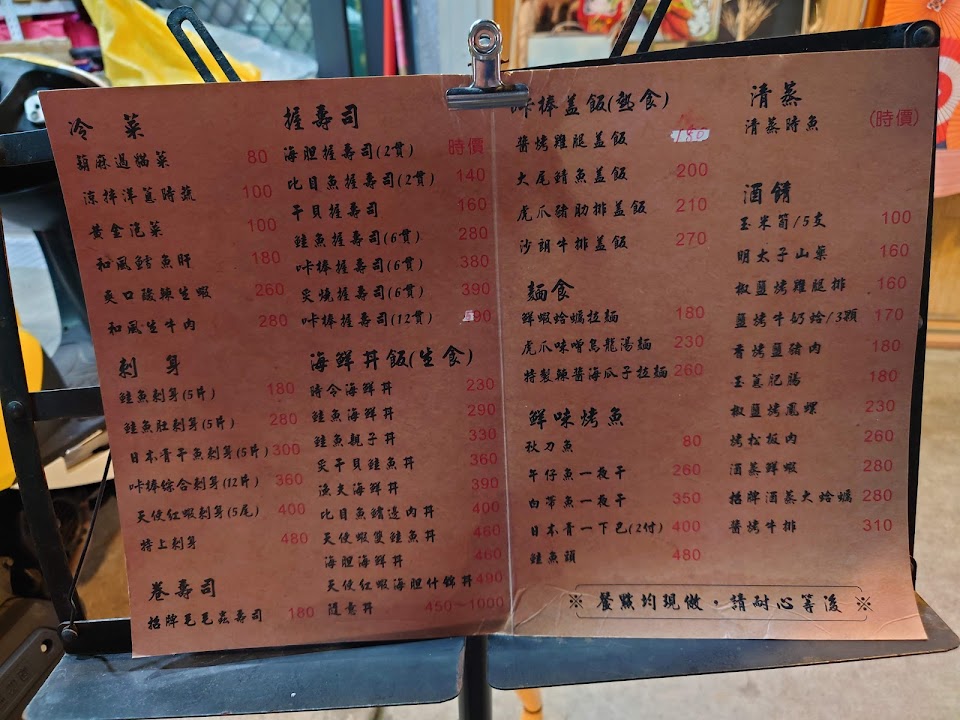 冷菜
胡麻過貓菜 80
涼拌洋蔥時蔬 100
黃金泡菜 100
和風鱈魚肝 180
爽口酸辣生蝦 260
和風生牛肉 280
刺身
鮭魚刺身(5片) 180
鮭魚肚刺身(5片) 280
日本青干魚刺身(5片) 300
咔棒綜合刺身(12片) 360
天使紅蝦刺身(5尾) 400
特上刺身 480
卷壽司
招牌毛毛蟲壽司 180
握壽司
海胆握壽司(2貫) 時價
比目魚握壽司(2貫) 140
干貝握壽司 160
鮭魚握壽司(6貫) 280
咔棒握壽司(6貫) 380
炙燒握壽司(6貫) 390
咔棒握壽司(12貫) 590
海鮮丼飯(生食)
時令海鮮丼 230
鮭魚海鮮丼 290
鮭魚親子丼 330
炙干貝鮭魚丼 360
漁夫海鮮丼 390
比目魚鰭邊肉丼 400
天使蝦雙鮭魚丼 460
海胆海鮮丼 460
天使紅蝦海胆什錦丼 490
隨意丼 450~1000
咔棒盖飯(熟食)
醬烤雞腿盖飯 180
大尾鯖魚盖飯 200
虎爪豬肋排盖飯 210
沙朗牛排盖飯 270
麵食
鮮蝦蛤蠣拉麵 180
虎爪味噌烏龍湯麵 230
特製辣醬海瓜子拉麵 260
鮮味烤魚
秋刀魚 80
午仔魚一夜干 260
白帶魚一夜干 350
日本青一下巴(2付) 400
鮭魚頭 480
清蒸
清蒸時魚 (時價)
酒餚
玉米筍/5支 100
明太子山藥 160
椒鹽烤雞腿排 160
鹽烤牛奶蛤/3顆 170
香烤鹽豬肉 180
玉蔥肥腸 180
椒鹽烤鳳螺 230
烤松板肉 260
酒蒸鮮蝦 280
招牌酒蒸大蛤蠣 280
醬烤牛排 310
※ 餐點均現做，請耐心等後 ※